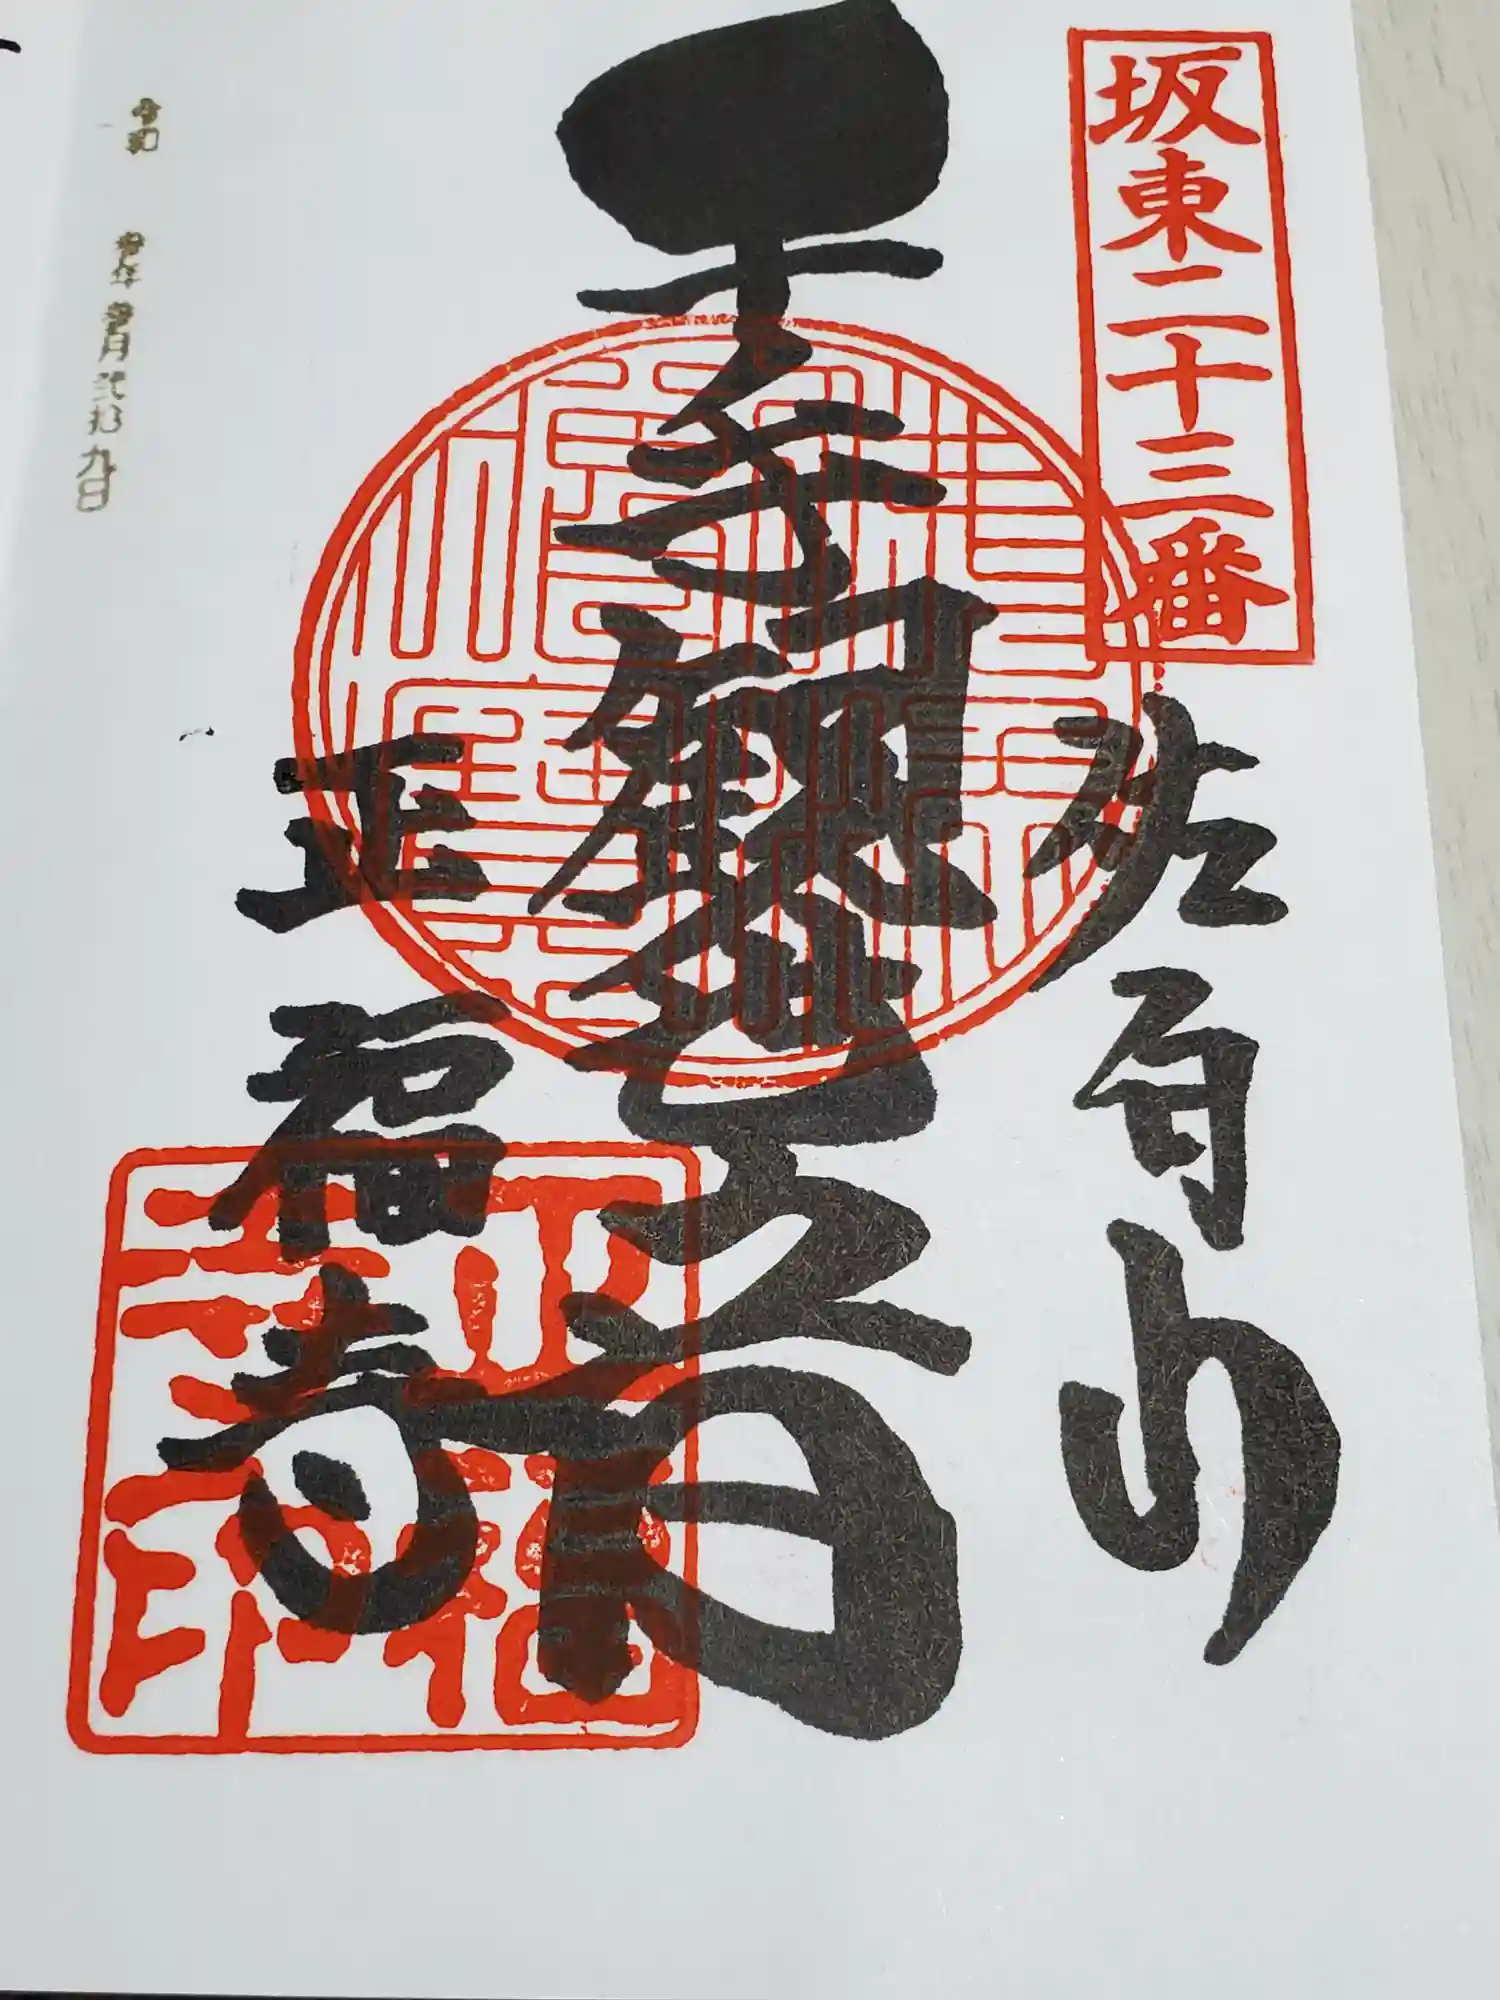 坂東二十三番
佐白山
千手観世音
正福寺
令和 年 月弐拾九日